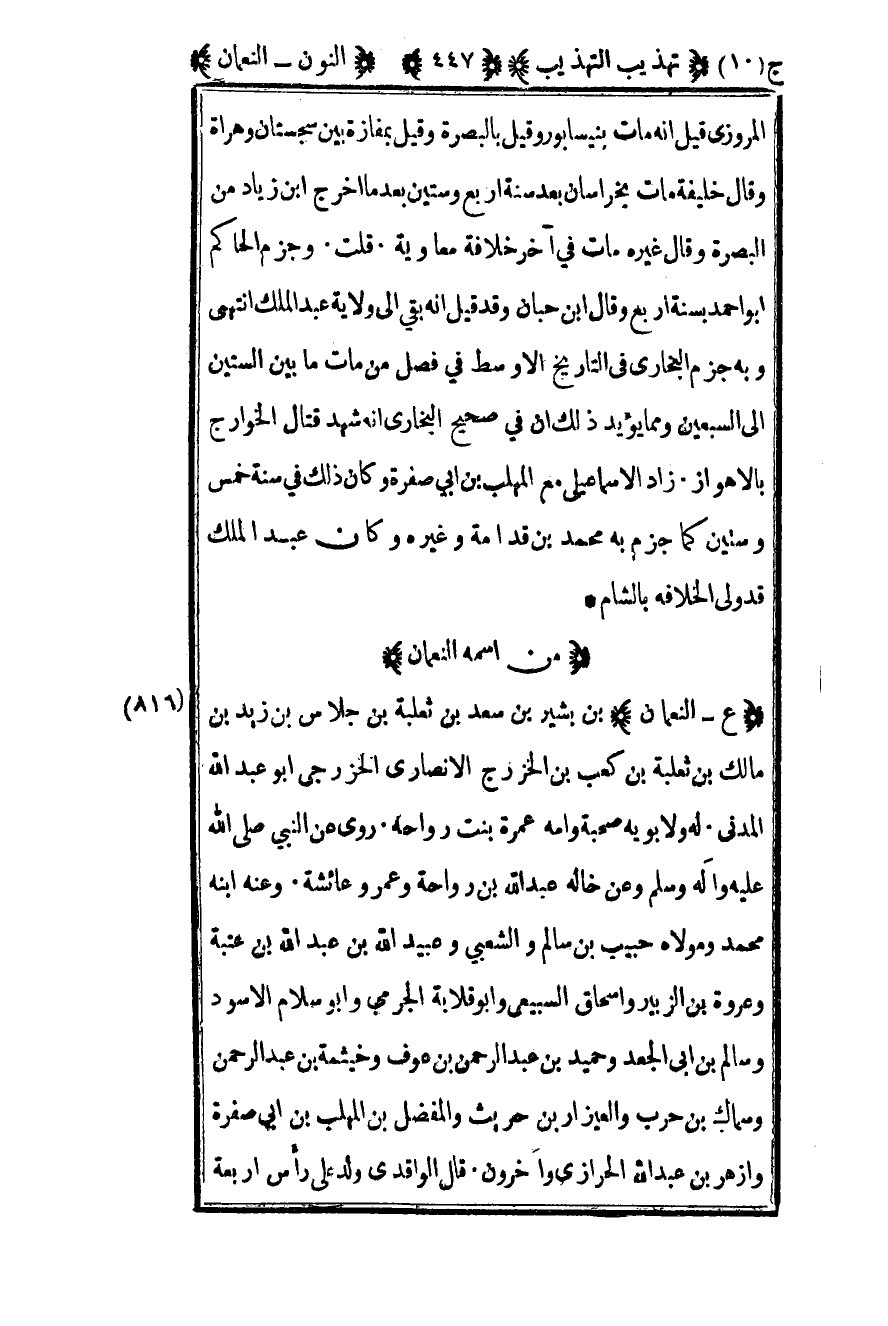 ج(١٠) ﴿ تهذيب التهذيب ﴾ ﴿ ٤٤٧ ﴾ ﴿ النون ــ النعمان ﴾
المروزى قيل انه مات بنيسابور وقيل بالبصرة وقيل بمفازة بين سجستان وهراة
وقال خليفة مات بخراسان بعد سنة اربع وستين بعد ما اخرج ابن زياد من
البصرة وقال غيره مات في آخر خلافة معاوية ٠ قلت ٠ وجزم الحاكم
ابو احمد بسنة اربع وقال ابن حبان وقد قيل انه بقي الى ولاية عبد الملك انتهى
وبه جزم البخارى فى التاريخ الاوسط في فصل من مات ما بين الستين
الى السبعين ومما يؤيد ذلك ان في صحيح البخارى انه شهد قتال الخوارج
بالاهواز ٠ زاد الاسماعيلى مع المهلب بن ابي صفرة وكان ذلك في سنة خمس
وستين كما جزم به محمد بن قدامة وغيره وكان عبد الملك
قد ولى الخلافه بالشام *
﴿ من اسمه النعمان ﴾
﴿ ع ــ النعمان ﴾ بن بشير بن سعد بن ثعلبة بن جلاس بن زيد بن (٨١٦)
مالك بن ثعلبة بن كعب بن الخزرج الانصارى الخزرجى ابو عبد الله
المدنى ٠ له ولابويه صحبة وامه عمرة بنت رواحة ٠ روى عن النبي صلى الله
عليه وآله وسلم وعن خاله عبد الله بن رواحة وعمر وعائشة ٠ وعنه ابنه
محمد ومولاه حبيب بن سالم والشعبي وعبيد الله بن عبد الله بن عتبة
وعروة بن الزبير واسحاق السبيعى وابو قلابة الجرمي وابو سلام الاسود
وسالم بن ابى الجعد وحميد بن عبد الرحمن بن عوف وخيثمة بن عبد الرحمن
وسماك بن حرب والعيزار بن حريث والمفضل بن المهلب بن ابي صفرة
وازهر بن عبد الله الحرازى وآخرون ٠ قال الواقدى ولد على رأس اربعة